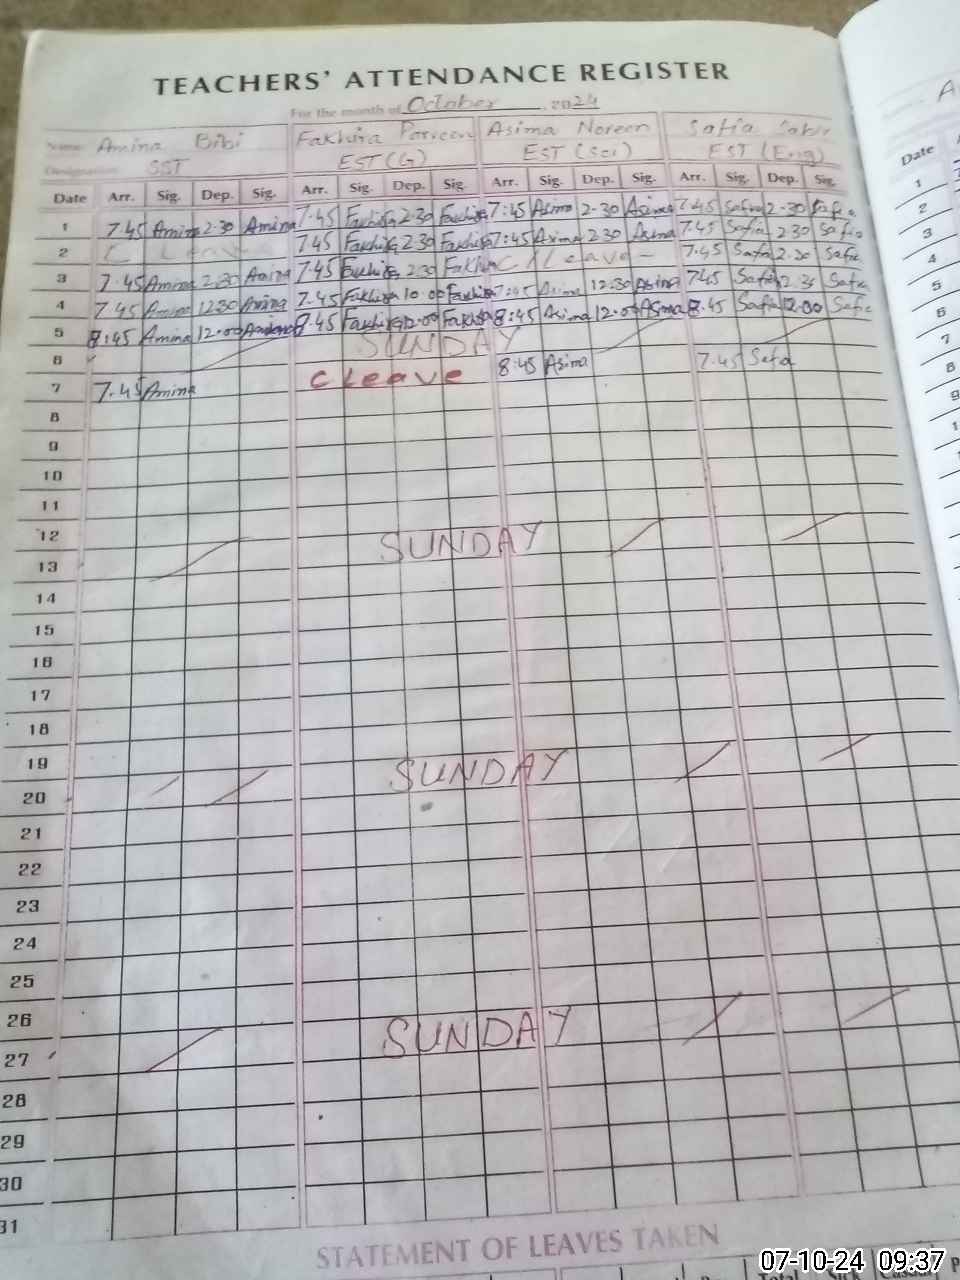 TEACHERS' ATTENDANCE REGISTER
For the month of October 2024
Name Amina Bibi Fakhira Parveen Asima Noreen Safia
Designation SST EST (G) EST (Sci) EST (Eng)
Date Arr. Sig. Dep. Sig. Arr. Sig. Dep. Sig. Arr. Sig. Dep. Sig. Arr. Sig. Dep. Sig.
1 7.45 Amina 2.30 Amina 7.45 Fakhira 2.30 Fakhira 7:45 Asima 2-30 Asima 7.45 Safia 2-30 Safia
2 C Leave 7.45 Fakhira 2.30 Fakhira 7:45 Asima 2.30 Asima 7.45 Safia 2.30 Safia
3 7.45 Amina 2.30 Amina 7.45 Fakhira 2.30 Fakhira C/Leave - 7.45 Safia Safia
4 7.45 Amina 12.30 Amina 7.45 Fakhira 10.00 Fakhira 7:45 Asima 12.30 Asima 7.45 Safia Safia
5 8:45 Amina 12.00 Amina 8.45 Fakhira 12.00 Fakhira 8:45 Asima 12.00 Asima 8.45 Safia 12.00 Safia
6 SUNDAY
7 7.45 Amina C Leave 8:45 Asima 7.45 Safia
8
9
10
11
12
13 SUNDAY
14
15
16
17
18
19
20 SUNDAY
21
22
23
24
25
26
27 SUNDAY
28
29
30
31
STATEMENT OF LEAVES TAKEN
Total
Date
1
2
3
4
5
6
7
8
9
07-10-24 09:37